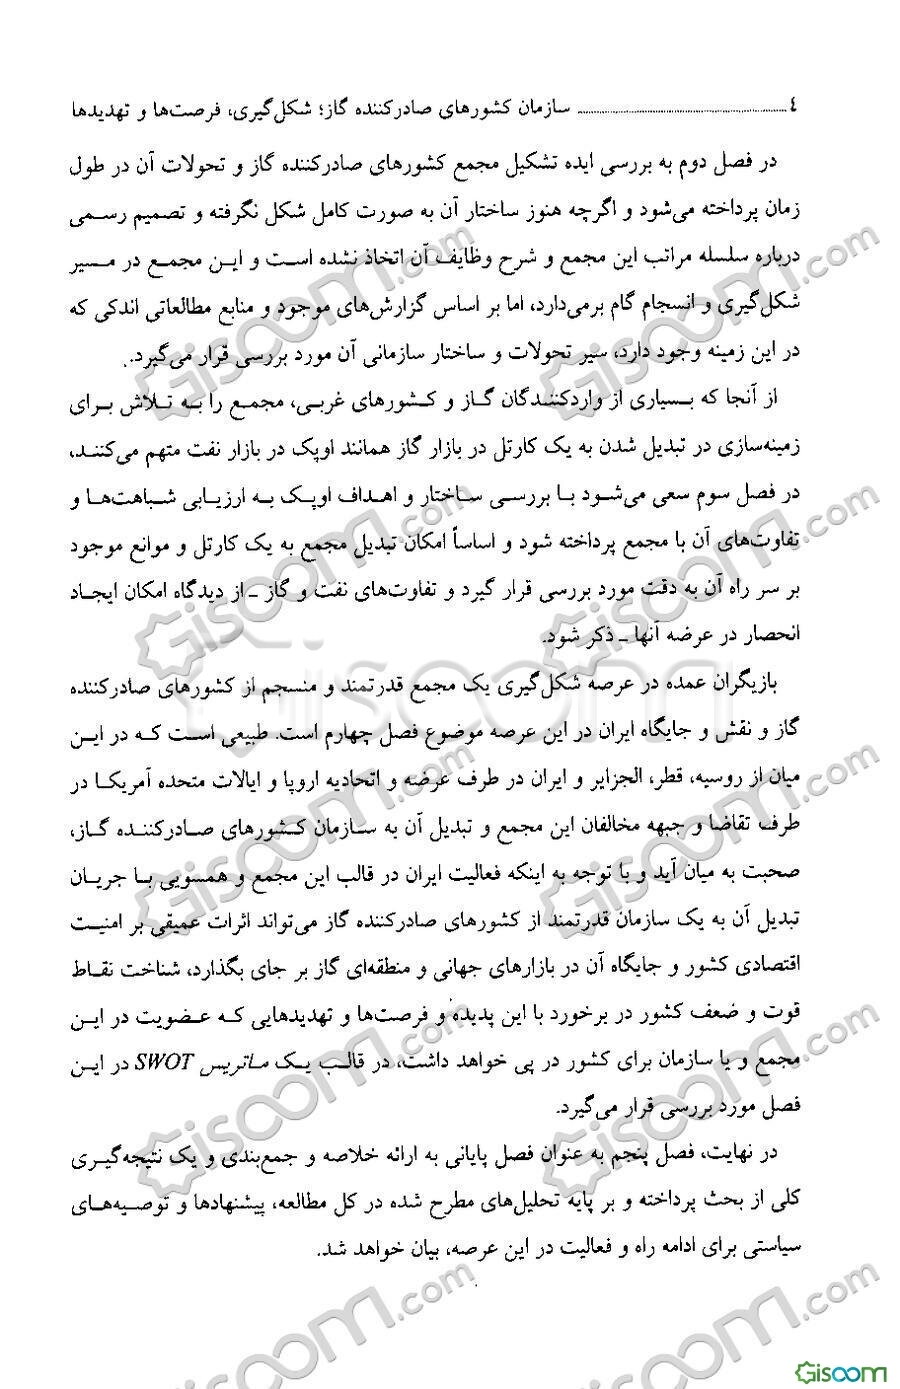 ٤ سازمان کشورهای صادرکننده گاز؛ شکل‌گیری، فرصت‌ها و تهدیدها
در فصل دوم به بررسی ایده تشکیل مجمع کشورهای صادرکننده گاز و تحولات آن در طول
زمان پرداخته می‌شود و اگرچه هنوز ساختار آن به صورت کامل شکل نگرفته و تصمیم رسمی
درباره سلسله مراتب این مجمع و شرح وظایف آن اتخاذ نشده است و این مجمع در مسیر
شکل‌گیری و انسجام گام برمی‌دارد، اما بر اساس گزارش‌های موجود و منابع مطالعاتی اندکی که
در این زمینه وجود دارد، سیر تحولات و ساختار سازمانی آن مورد بررسی قرار می‌گیرد.
از آنجا که بسیاری از واردکنندگان گاز و کشورهای غربی، مجمع را به تلاش برای
زمینه‌سازی در تبدیل شدن به یک کارتل در بازار گاز همانند اوپک در بازار نفت متهم می‌کنند،
در فصل سوم سعی می‌شود با بررسی ساختار و اهداف اوپک به ارزیابی شباهت‌ها و
تفاوت‌های آن با مجمع پرداخته شود و اساساً امکان تبدیل مجمع به یک کارتل و موانع موجود
بر سر راه آن به دقت مورد بررسی قرار گیرد و تفاوت‌های نفت و گاز ـ از دیدگاه امکان ایجاد
انحصار در عرضه آنها ـ ذکر شود.
بازیگران عمده در عرصه شکل‌گیری یک مجمع قدرتمند و منسجم از کشورهای صادرکننده
گاز و نقش و جایگاه ایران در این عرصه موضوع فصل چهارم است. طبیعی است که در این
میان از روسیه، قطر، الجزایر و ایران در طرف عرضه و اتحادیه اروپا و ایالات متحده آمریکا در
طرف تقاضا و جبهه مخالفان این مجمع و تبدیل آن به سازمان کشورهای صادرکننده گاز،
صحبت به میان آید و با توجه به اینکه فعالیت ایران در قالب این مجمع و همسویی با جریان
تبدیل آن به یک سازمان قدرتمند از کشورهای صادرکننده گاز می‌تواند اثرات عمیقی بر امنیت
اقتصادی کشور و جایگاه آن در بازارهای جهانی و منطقه‌ای گاز بر جای بگذارد، شناخت نقاط
قوت و ضعف کشور در برخورد با این پدیده و فرصت‌ها و تهدیدهایی که عضویت در این
مجمع و یا سازمان برای کشور در پی خواهد داشت، در قالب یک ماتریس SWOT در این
فصل مورد بررسی قرار می‌گیرد.
در نهایت، فصل پنجم به عنوان فصل پایانی به ارائه خلاصه و جمع‌بندی و یک نتیجه‌گیری
کلی از بحث پرداخته و بر پایه تحلیل‌های مطرح شده در کل مطالعه، پیشنهادها و توصیه‌های
سیاستی برای ادامه راه و فعالیت در این عرصه، بیان خواهد شد.
Giscom.com
Giscom.com
Giscom.com
Giscom.com
Giscom
Giscom.com
Giscom.com
Giscom.com
Giscom.com
Giscom.com
Giscom.com
Gisoom